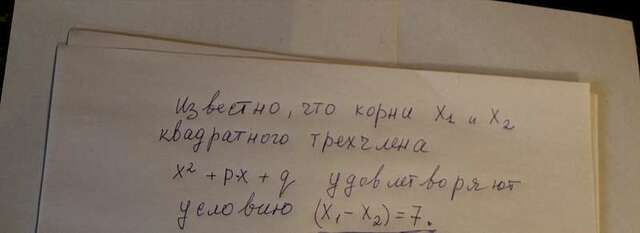 Известно, что корни x₁ и x₂
квадратного трехчлена
x² + px + q удовлетворяют
условию (x₁ - x₂) = 7.